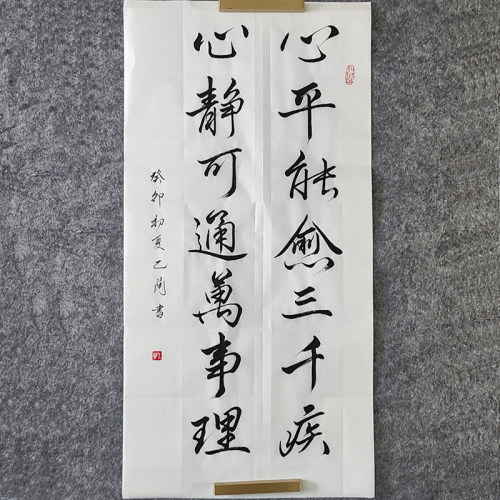 心平能愈三千疾
心静可通萬事理
癸卯初夏乙蘭書